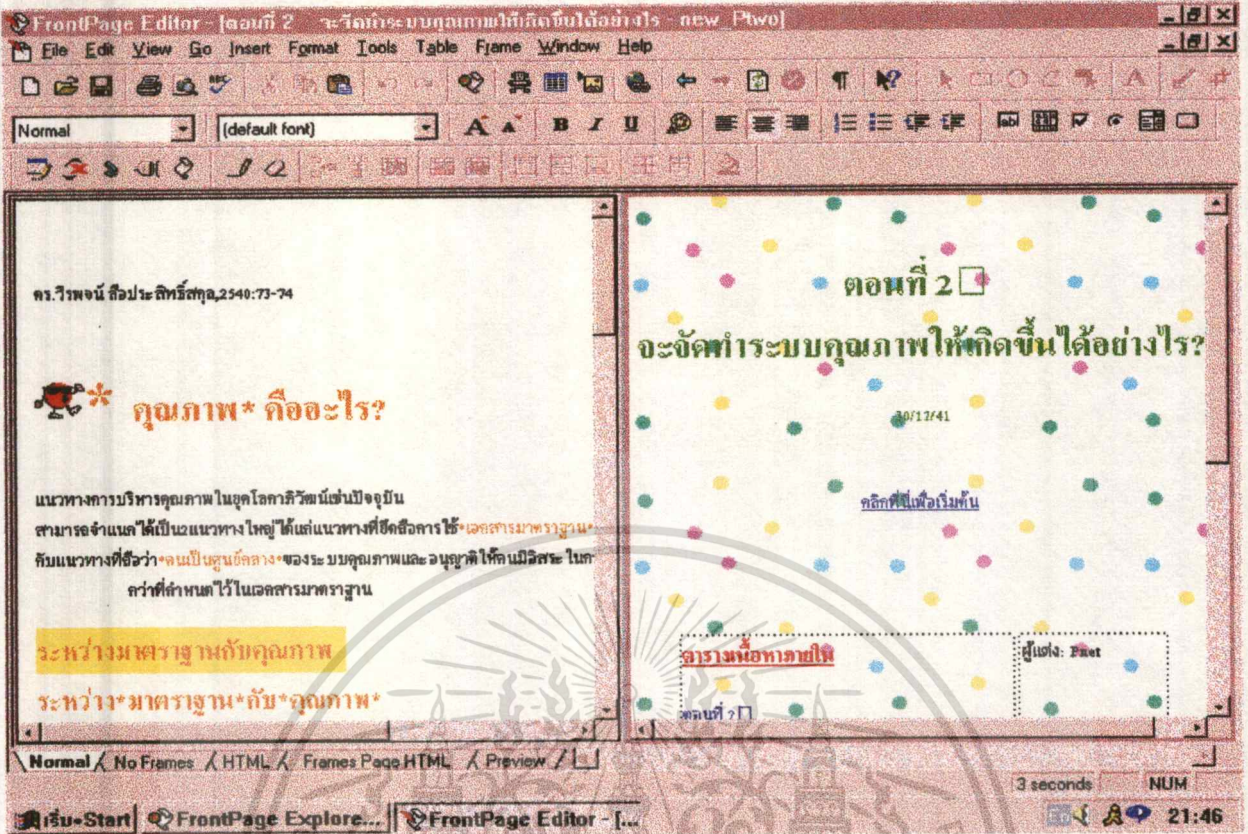 FrontPage Editor - [ตอนที่ 2 จะจัดทำระบบคุณภาพให้เกิดขึ้นได้อย่างไร - new_Ptwo]
File Edit View Go Insert Format Tools Table Frame Window Help
Normal (default font)
ดร.วีรพจน์ ลือประสิทธิ์สกุล,2540:73-74
คุณภาพ* คืออะไร?
แนวทางการบริหารคุณภาพในยุคโลกาภิวัฒน์เช่นปัจจุบัน
สามารถจำแนกได้เป็น2แนวทางใหญ่ได้แก่แนวทางที่ยึดถือการใช้*เอกสารมาตราฐาน*
กับแนวทางที่ถือว่า*คนเป็นศูนย์กลาง*ของระบบคุณภาพและอนุญาติให้คนมีอิสระในก
กว่าที่กำหนดไว้ในเอกสารมาตราฐาน
ระหว่างมาตราฐานกับคุณภาพ
ระหว่าง*มาตราฐาน*กับ*คุณภาพ*
ตอนที่ 2
จะจัดทำระบบคุณภาพให้เกิดขึ้นได้อย่างไร?
30/12/41
คลิกที่นี่เพื่อเริ่มต้น
ตารางเนื้อหาภายใน
ผู้แต่ง: Pnet
ตอนที่ 2
Normal No Frames HTML Frames Page HTML Preview
3 seconds NUM
เริ่ม-Start FrontPage Explore... FrontPage Editor - [...
En 21:46